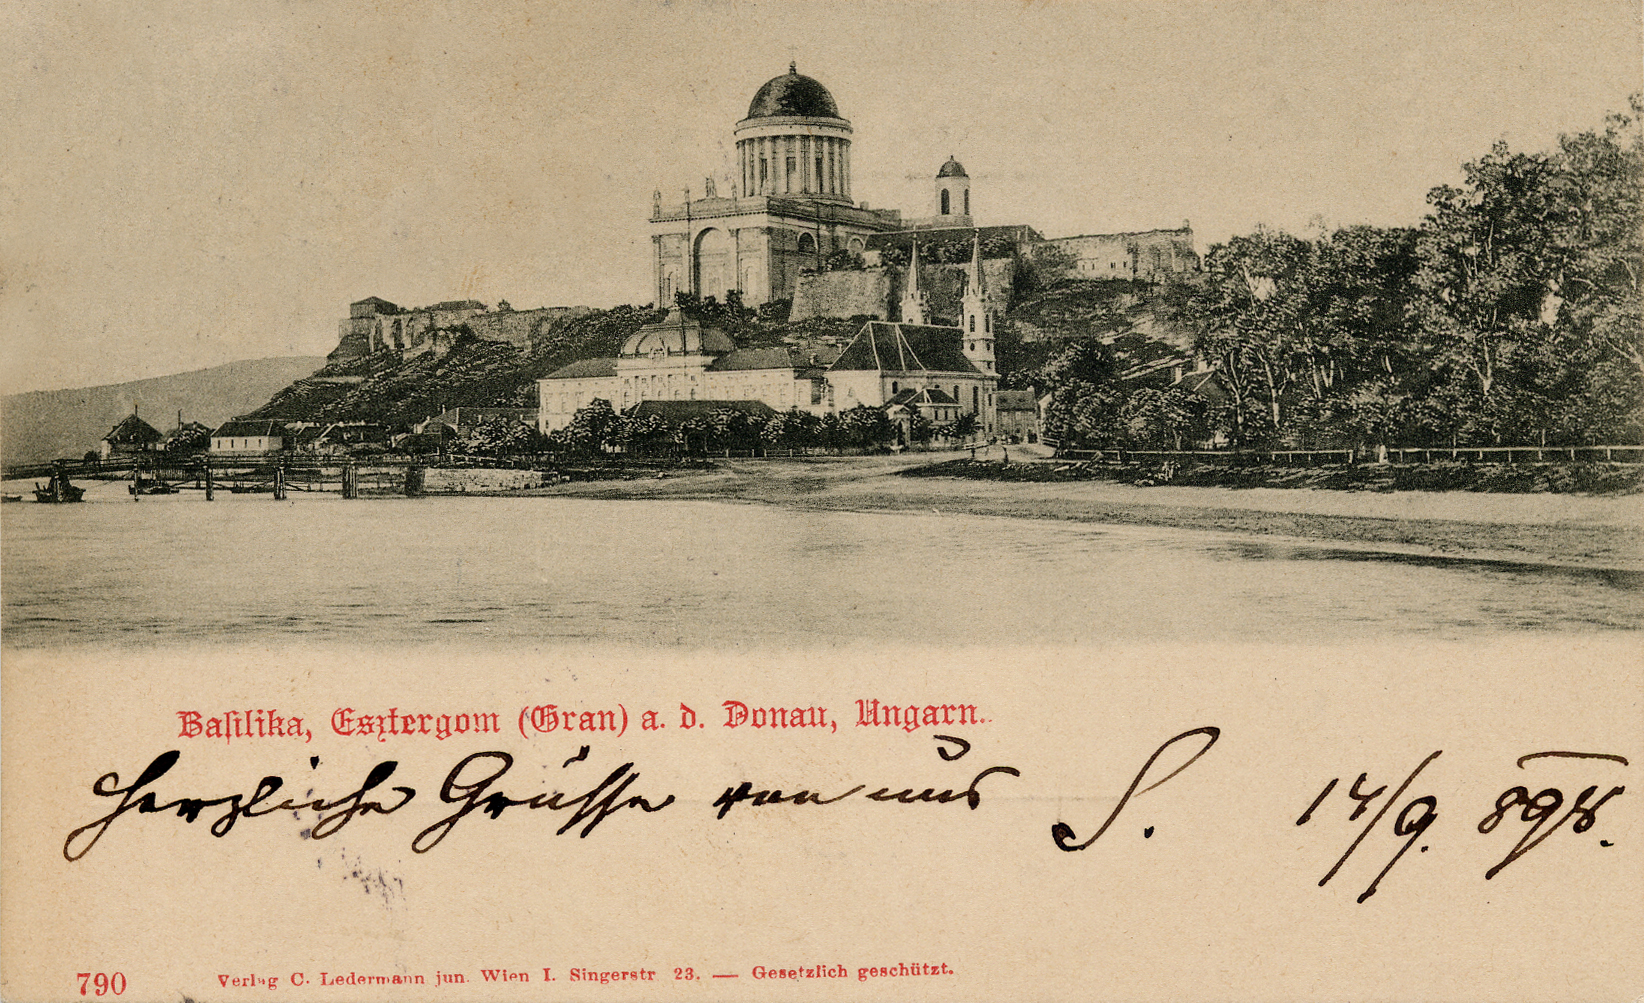 Basilika, Esztergom (Gran) a. d. Donau, Ungarn.
Herzliche Grüsse von uns S. 14/9. 898.
790 Verlag C. Ledermann jun. Wien I. Singerstr. 23. — Gesetzlich geschützt.